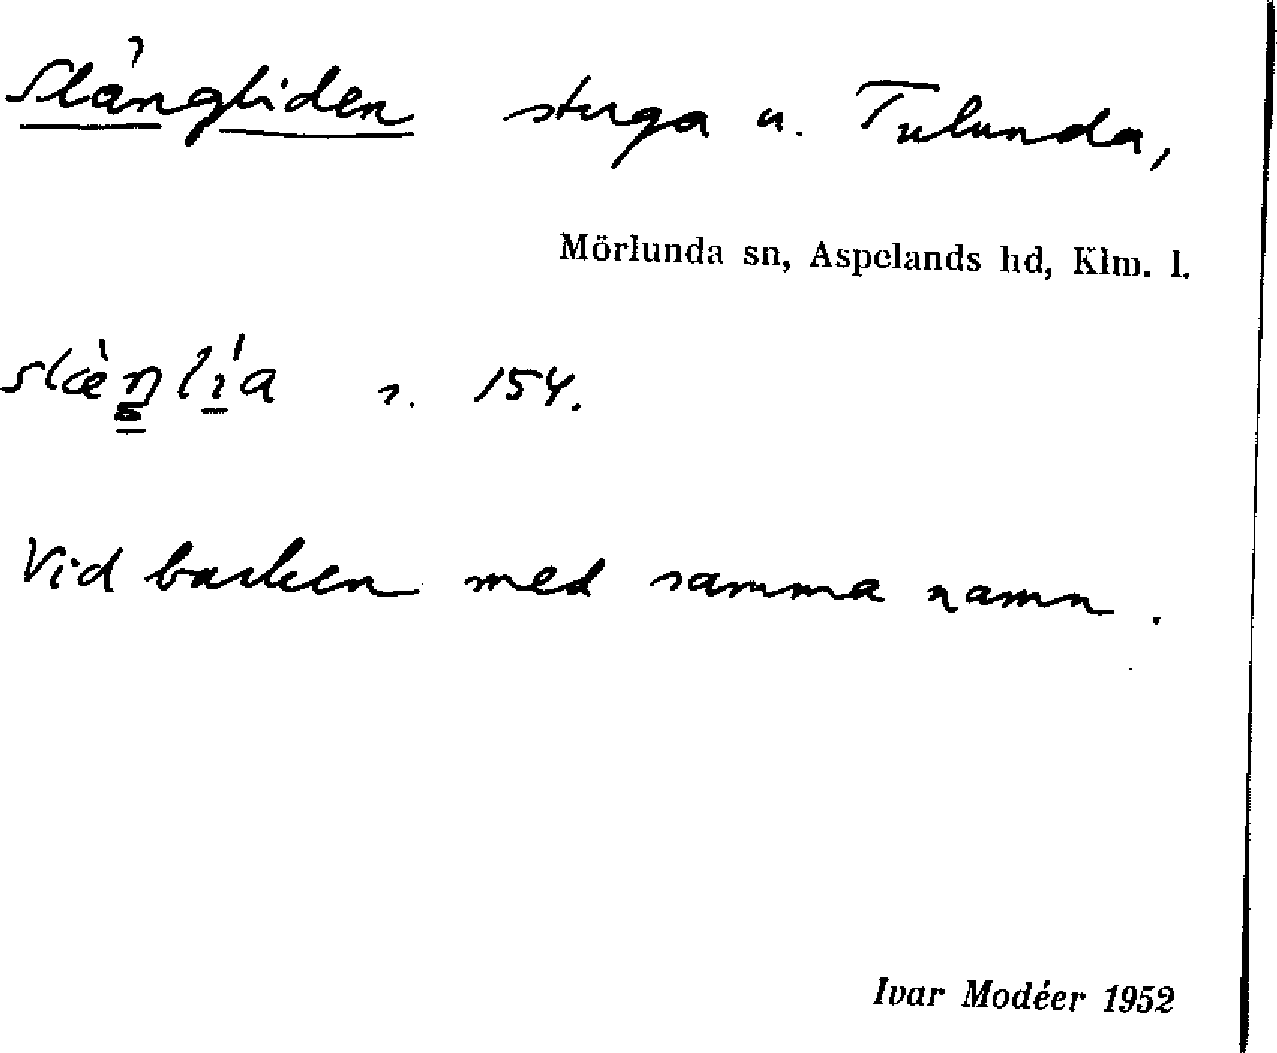 Slängliden stuga u. Tulunda,
Mörlunda sn, Aspelands hd, Klm. l.
s. 154.
Vid backen med samma namn.
Ivar Modéer 1952